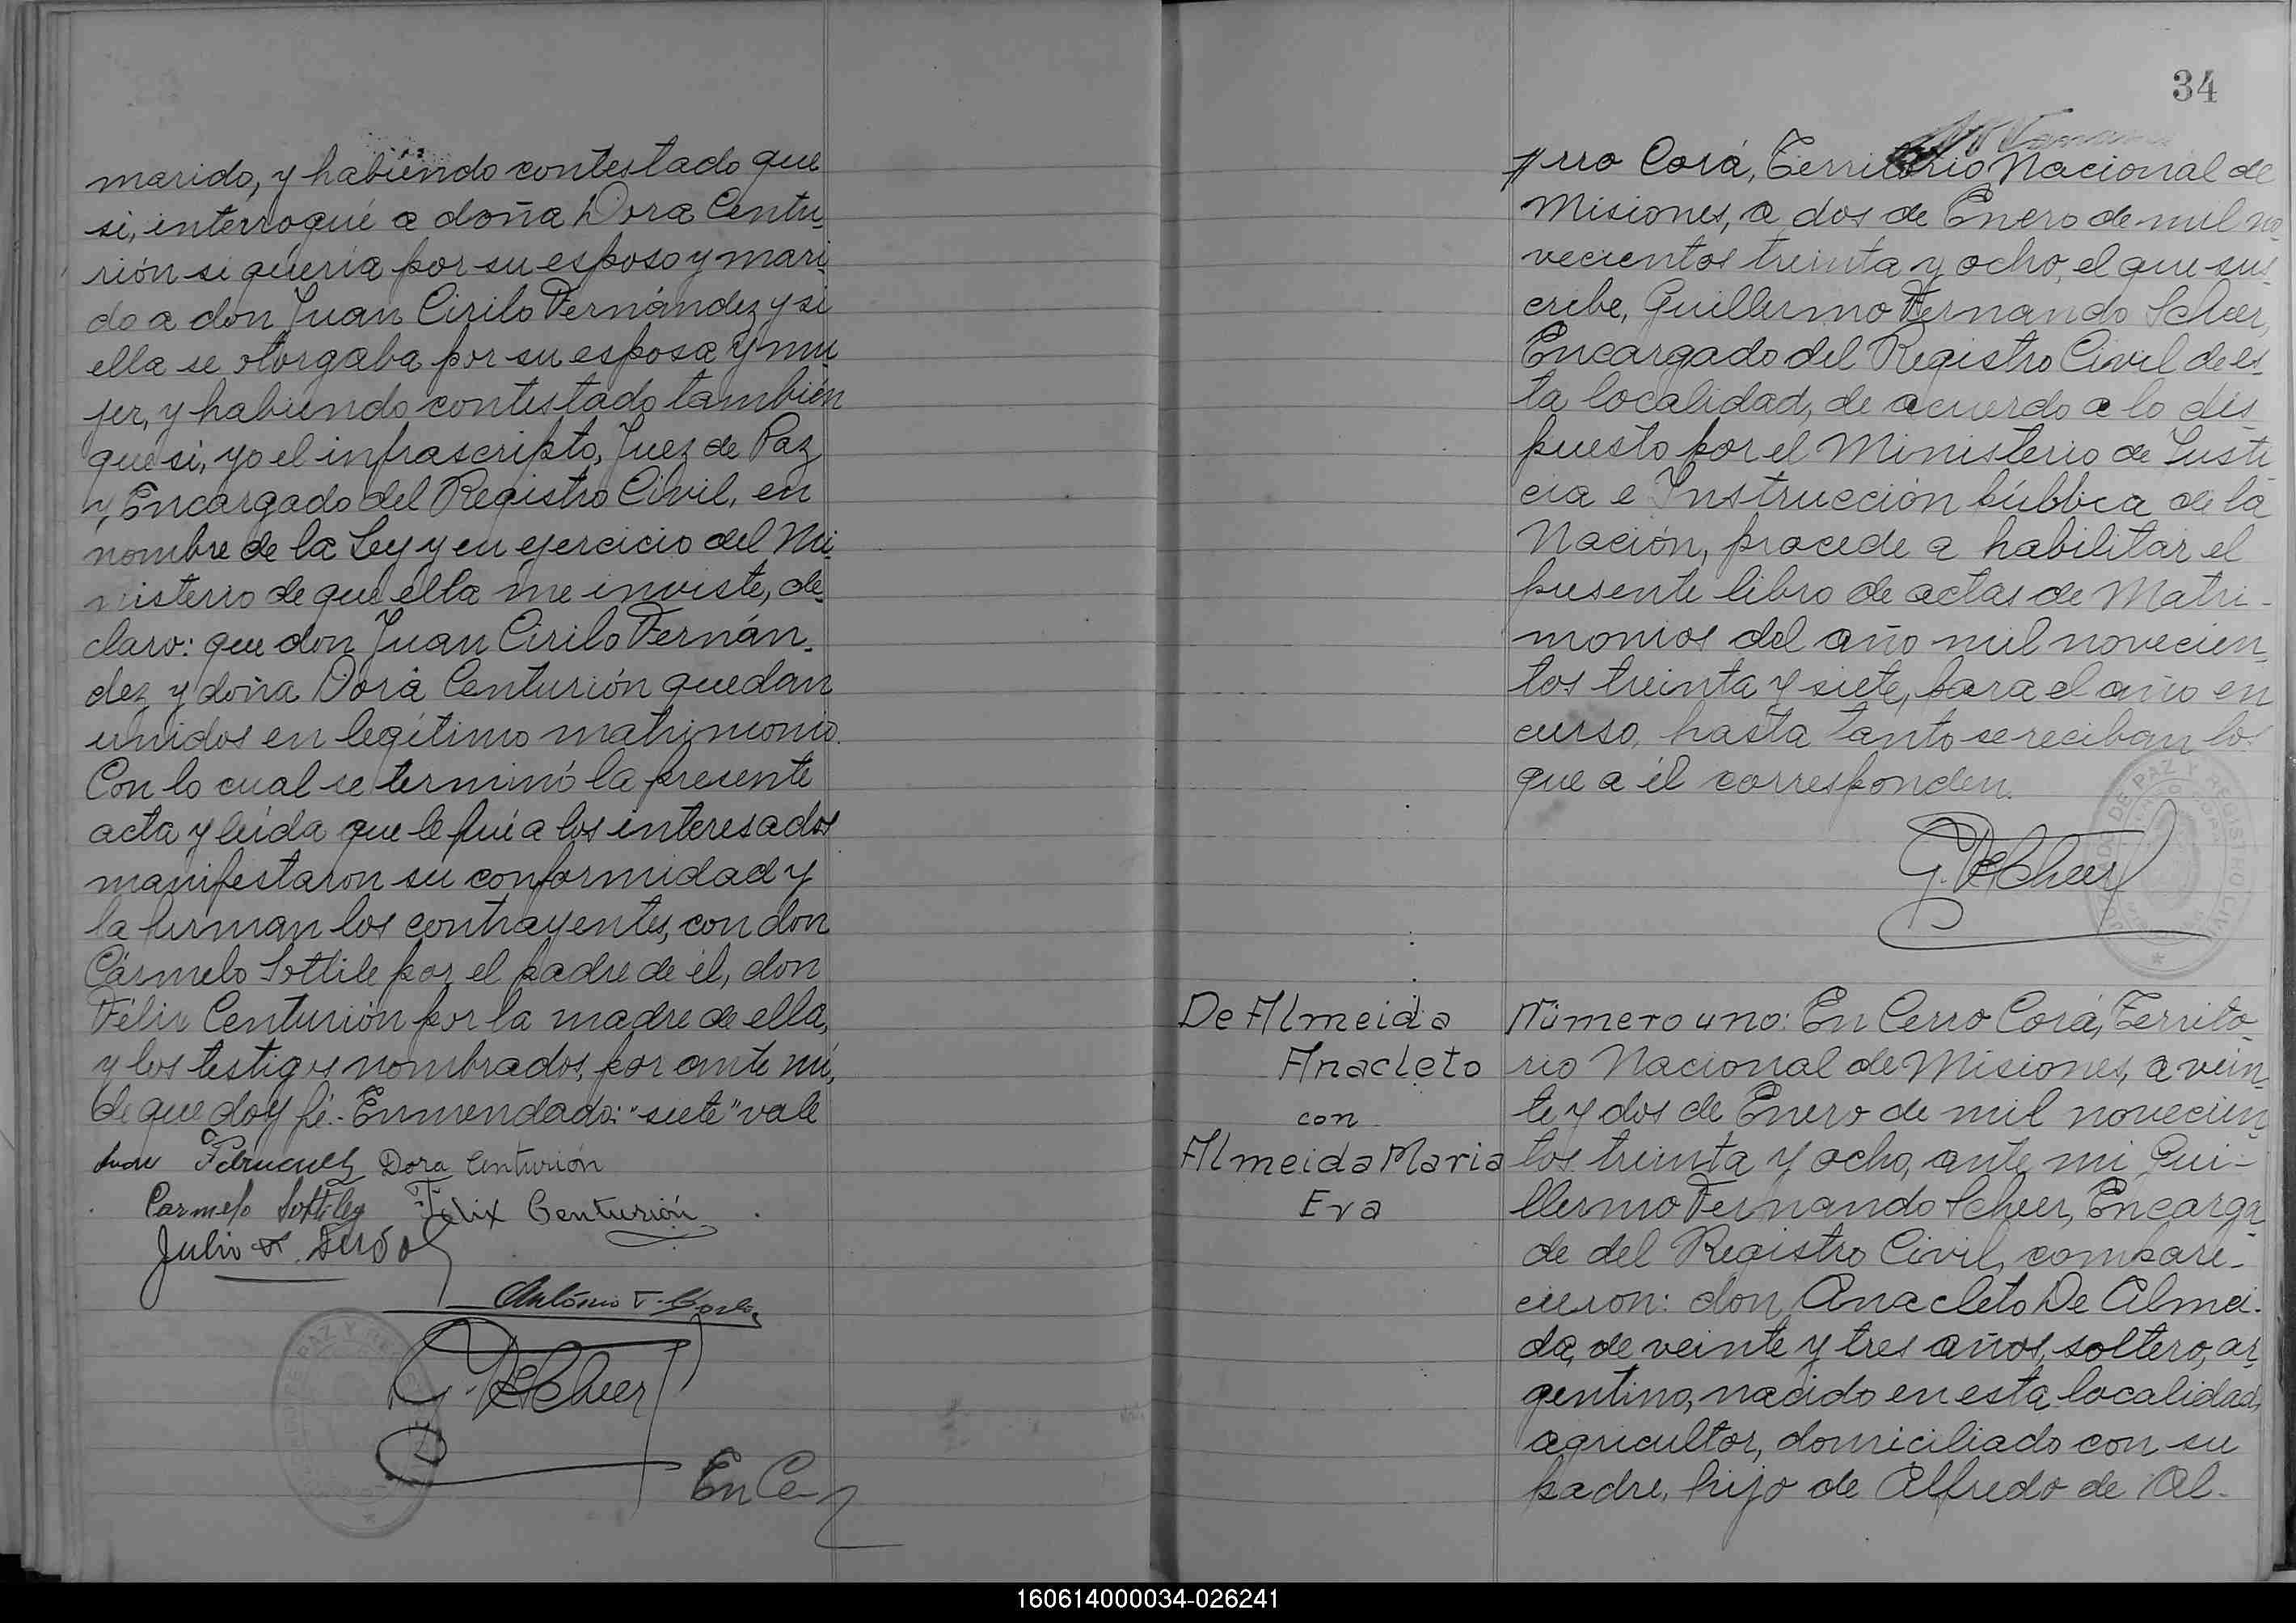 marido, y habiendo contestado que
si, interrogué a doña Dora Centu-
rión si quería por su esposo y mari-
do a don Juan Cirilo Fernández y si
ella se otorgaba por su esposa y mu-
jer, y habiendo contestado también
que si, yo el infrascripto, Juez de Paz
y Encargado del Registro Civil, en
nombre de la Ley y en ejercicio del Mi-
nisterio de que ella me inviste, de-
claro: que don Juan Cirilo Fernán-
dez y doña Dora Centurión quedan
unidos en legítimo matrimonio.
Con lo cual se terminó la presente
acta y leída que le fué a los interesados
manifestaron su conformidad y
la firman los contrayentes, con don
Cármelo Sottile por el padre de él, don
Félix Centurión por la madre de ella,
y los testigos nombrados, por ante mí,
de que doy fé.- Enmendado: "siete" vale
Dora Centurión
Carmelo Félix Centurión
Julio
Antonio
G. F. Scheer
En Ce-
34
rro Corá, Territorio Nacional de
Misiones, a dos de Enero de mil no-
vecientos treinta y ocho, el que sus-
cribe, Guillermo Fernando Scheer,
Encargado del Registro Civil de es-
ta localidad, de acuerdo a lo dis-
puesto por el Ministerio de Justi-
cia e Instrucción pública de la
Nación, procede a habilitar el
presente libro de actas de Matri-
monios del año mil novecien-
tos treinta y siete, para el año en
curso, hasta tanto se reciban los
que a él corresponden.
G. F. Scheer
De Almeida
Anacleto
con
Almeida Maria
Eva
Número uno: En Cerro Corá, Territo-
rio Nacional de Misiones, a vein-
te y dos de Enero de mil novecien-
tos treinta y ocho, ante mi Gui-
llermo Fernando Scheer, Encarga-
de del Registro Civil, compare-
cieron: don Anacleto De Almei-
da, de veinte y tres años, soltero, ar-
gentino, nacido en esta localidad,
agricultor, domiciliado con su
padre, hijo de Alfredo de Al-
160614000034-026241